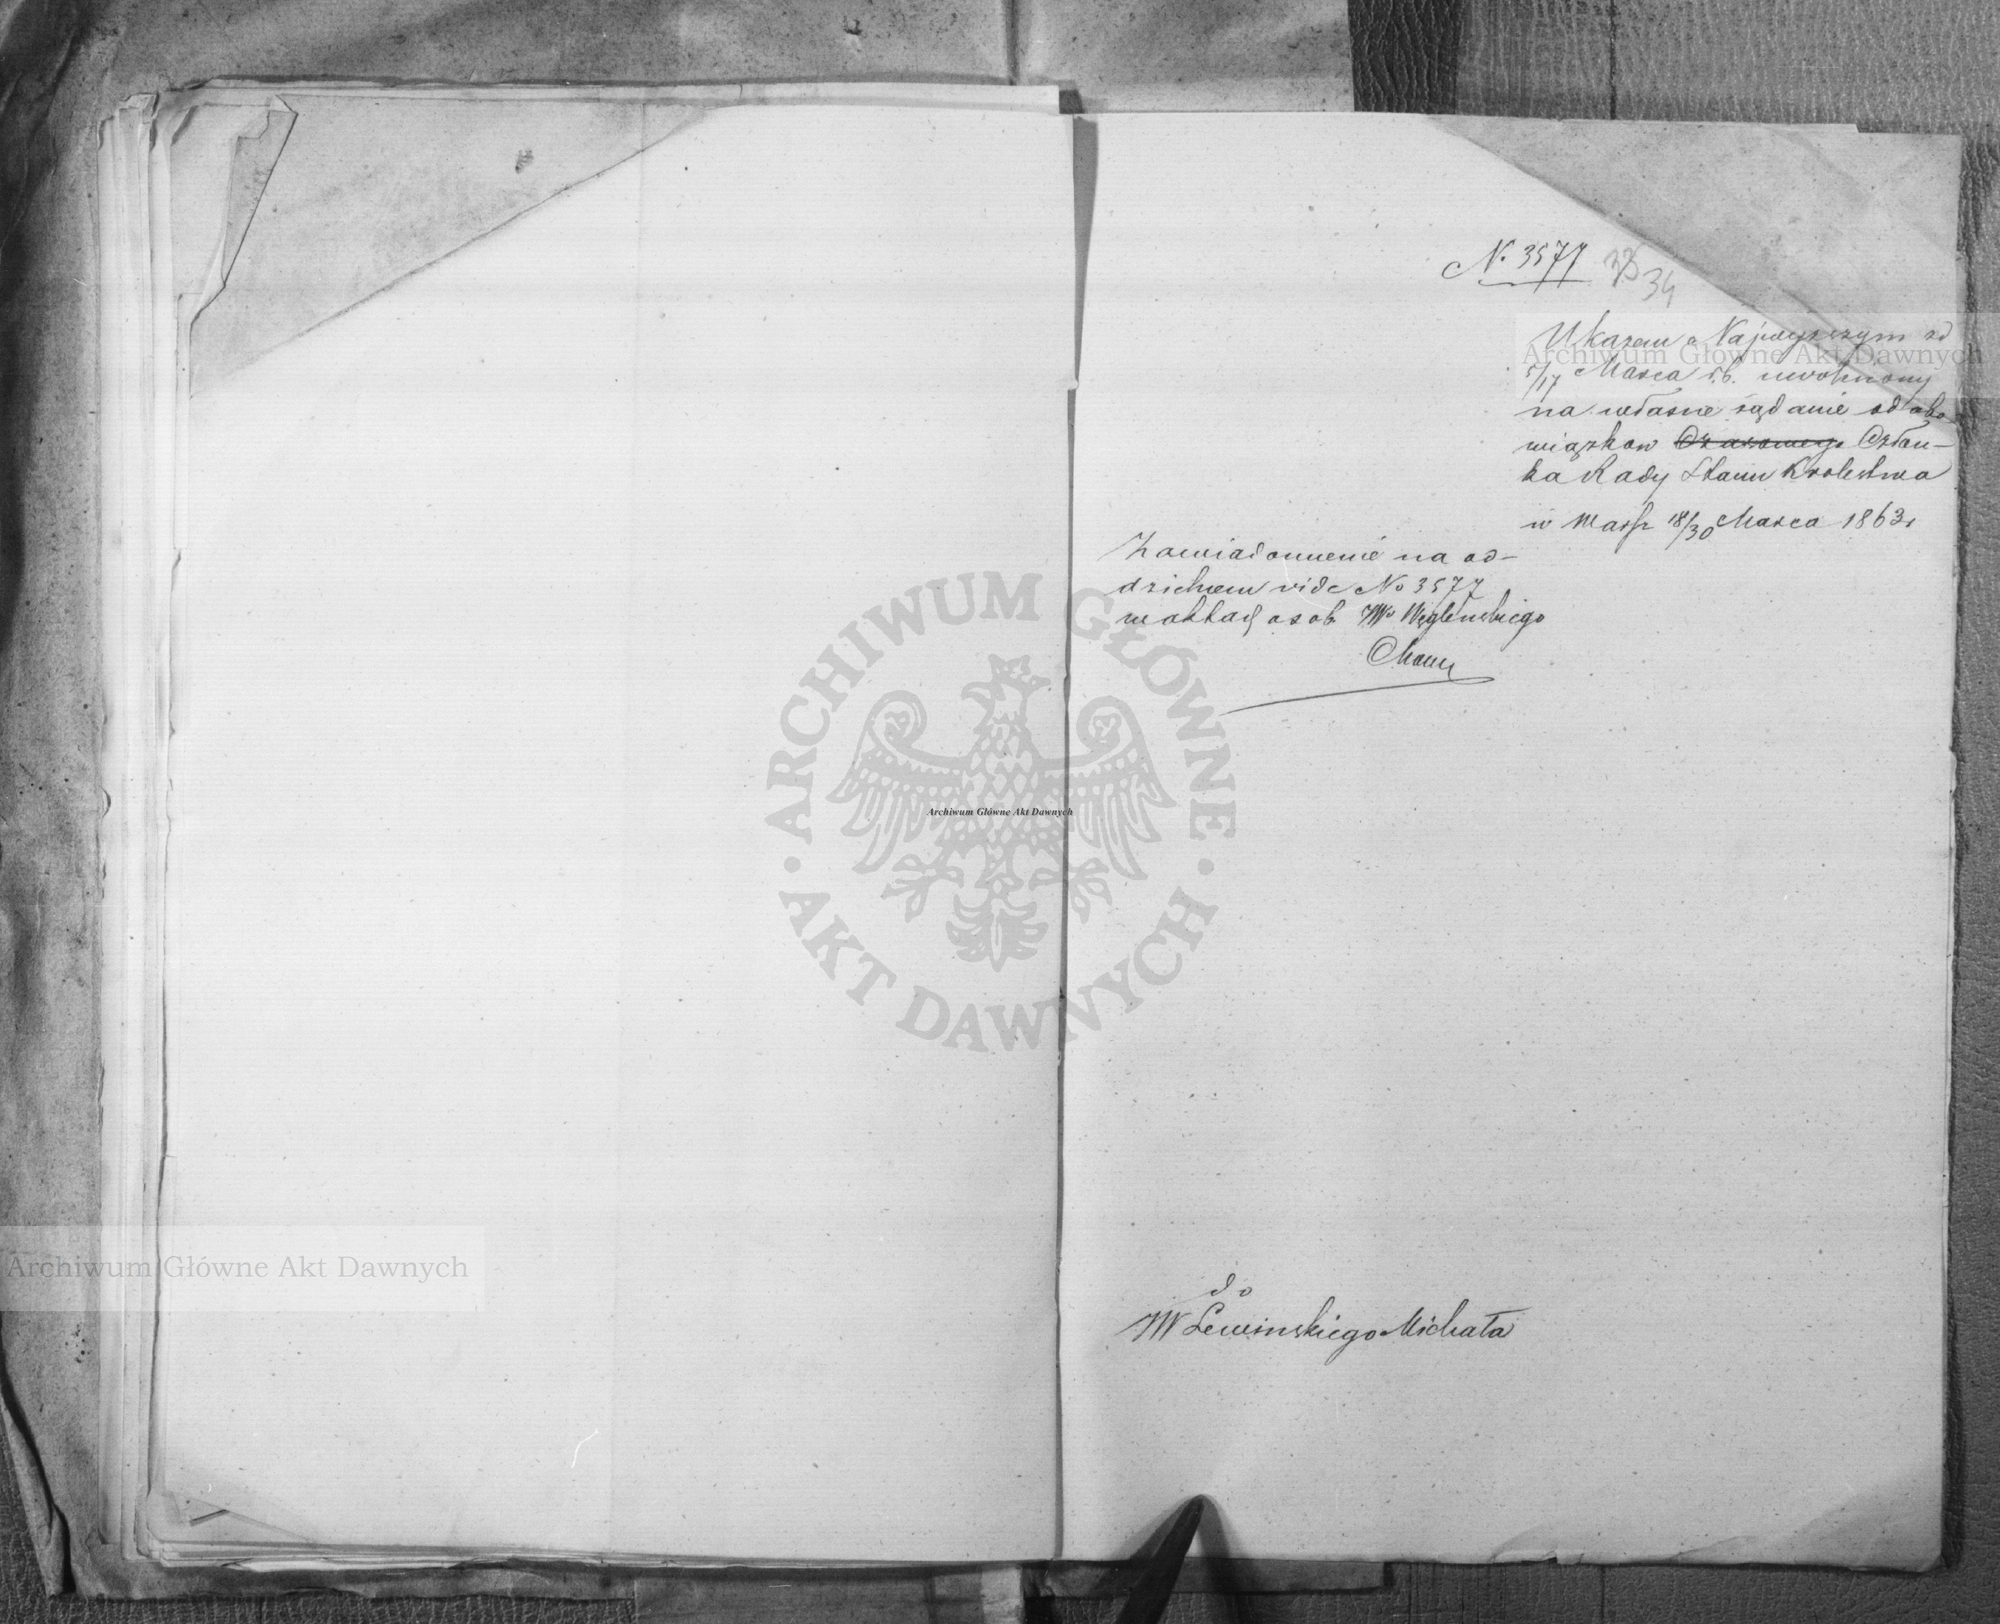 No 3577
33
34
Ukazem Najwyższym od
5/17 Marca r.b. uwolniony
na własne żądanie od obo-
wiązkow Czasowego Człon-
ka Rady Stanu Krolestwa
w Warsz 18/30 Marca 1863.
Zawiadomienie na od-
dzielnem vide No 3577
w aktach osob. JW. Węglenskiego
do
JW Lewinskiego Michała
Archiwum Główne Akt Dawnych
ARCHIWUM GŁÓWNE AKT DAWNYCH
Archiwum Główne Akt Dawnych
Archiwum Główne Akt Dawnych